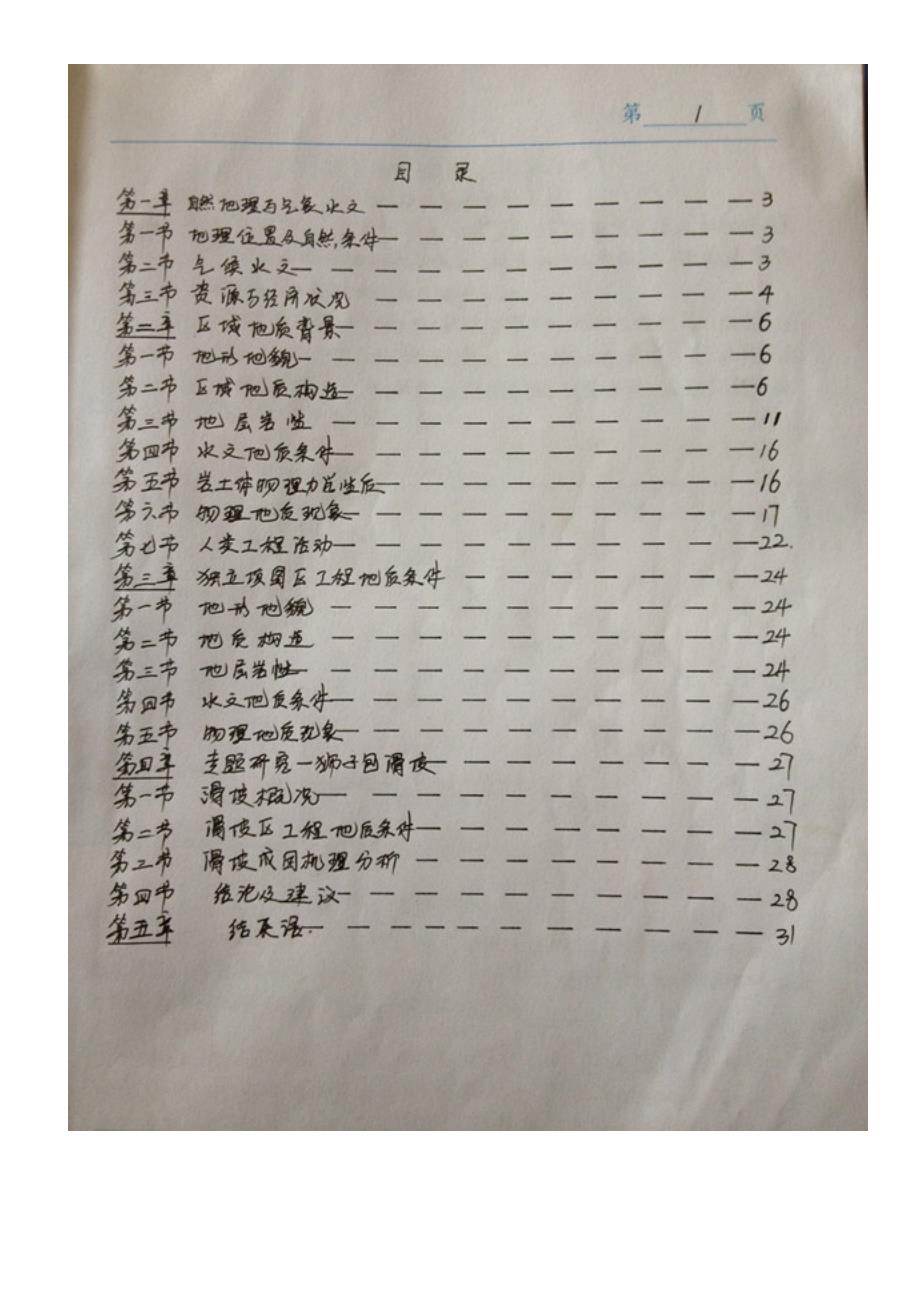 第 1 页
目 录
第一章 自然地理与气象水文 — — — — — — — — — 3
第一节 地理位置及自然条件 — — — — — — — — — 3
第二节 气候水文 — — — — — — — — — — — 3
第三节 资源与经济状况 — — — — — — — — — 4
第二章 区域地质背景 — — — — — — — — — — 6
第一节 地形地貌 — — — — — — — — — — — 6
第二节 区域地质构造 — — — — — — — — — — 6
第三节 地层岩性 — — — — — — — — — — 11
第四节 水文地质条件 — — — — — — — — — — 16
第五节 岩土体物理力学性质 — — — — — — — — — 16
第六节 物理地质现象 — — — — — — — — — — 17
第七节 人类工程活动 — — — — — — — — — — 22.
第三章 独立填图区工程地质条件 — — — — — — — 24
第一节 地形地貌 — — — — — — — — — — 24
第二节 地质构造 — — — — — — — — — — 24
第三节 地层岩性 — — — — — — — — — — — 24
第四节 水文地质条件 — — — — — — — — — — 26
第五节 物理地质现象 — — — — — — — — — — 26
第四章 专题研究—狮子包滑坡 — — — — — — — — 27
第一节 滑坡概况 — — — — — — — — — — — 27
第二节 滑坡区工程地质条件 — — — — — — — — 27
第三节 滑坡成因机理分析 — — — — — — — — 28
第四节 结论及建议 — — — — — — — — — — 28
第五章 结束语. — — — — — — — — — — — 31